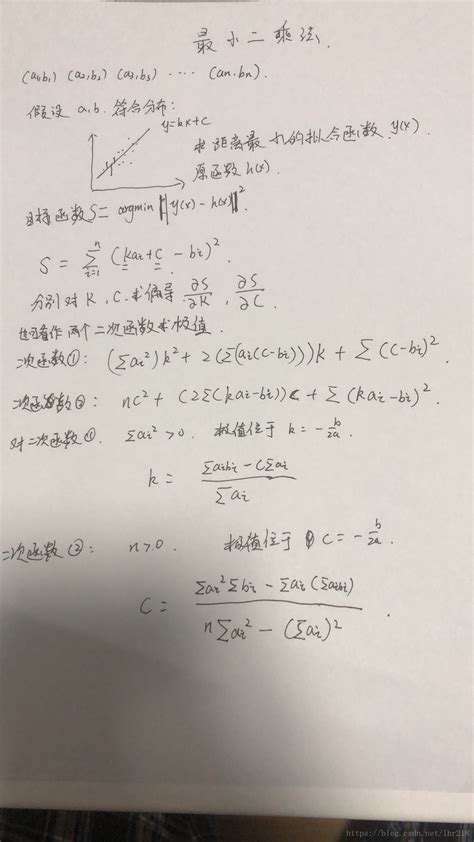 最小二乘法.
(a1,b1) (a2,b2) (a3,b3) .... (an,bn).
假设 a,b. 符合分布:
y=kx+c
求距离最小的拟合函数 y(x).
原函数 h(x).
目标函数S= argmin ||y(x)-h(x)||²
S = Σ_{i=1}^{n} (kai+c - bi)².
分别对 K, C.求偏导 ∂S/∂K, ∂S/∂C.
也可看作两个二次函数求极值.
二次函数①: (Σai²)k² + 2(Σ(ai(C-bi)))k + Σ(C-bi)².
二次函数②: nC² + (2Σ(kai-bi))C + Σ(kai-bi)².
对二次函数①. Σai²>0. 极值位于 k=-b/2a.
k = (Σaibi - CΣai) / Σai
二次函数②: n>0. 极值位于 C=-b/2a.
C = (Σai²Σbi - Σai(Σaibi)) / (nΣai² - (Σai)²).
https://blog.csdn.net/lhr218